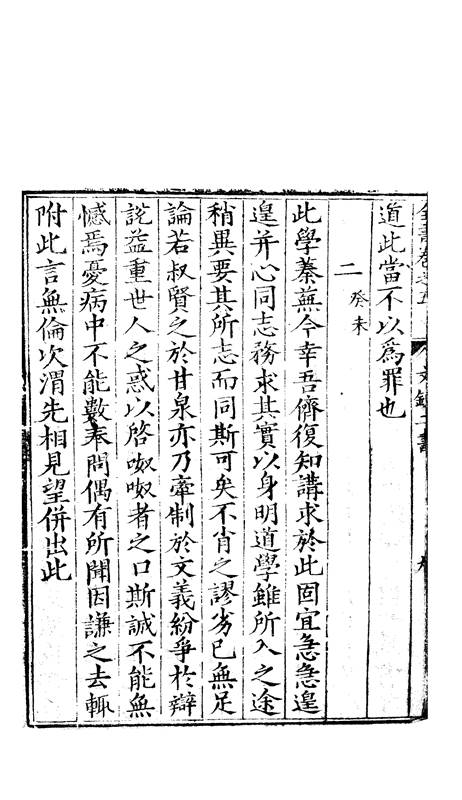 道此當不以爲罪也
二 癸未
此學蓁蕪今幸吾儕復知講求於此固宜急急遑
遑并心同志務求其實以身明道學雖所入之途
稍異要其所志而同斯可矣不肖之謬劣已無足
論若叔賢之於甘泉亦乃牽制於文義紛爭於辯
說益重世人之惑以啓呶呶者之口斯誠不能無
憾焉憂病中不能數奉問偶有所聞因謙之去輒
附此言無倫次渭先相見望併出此